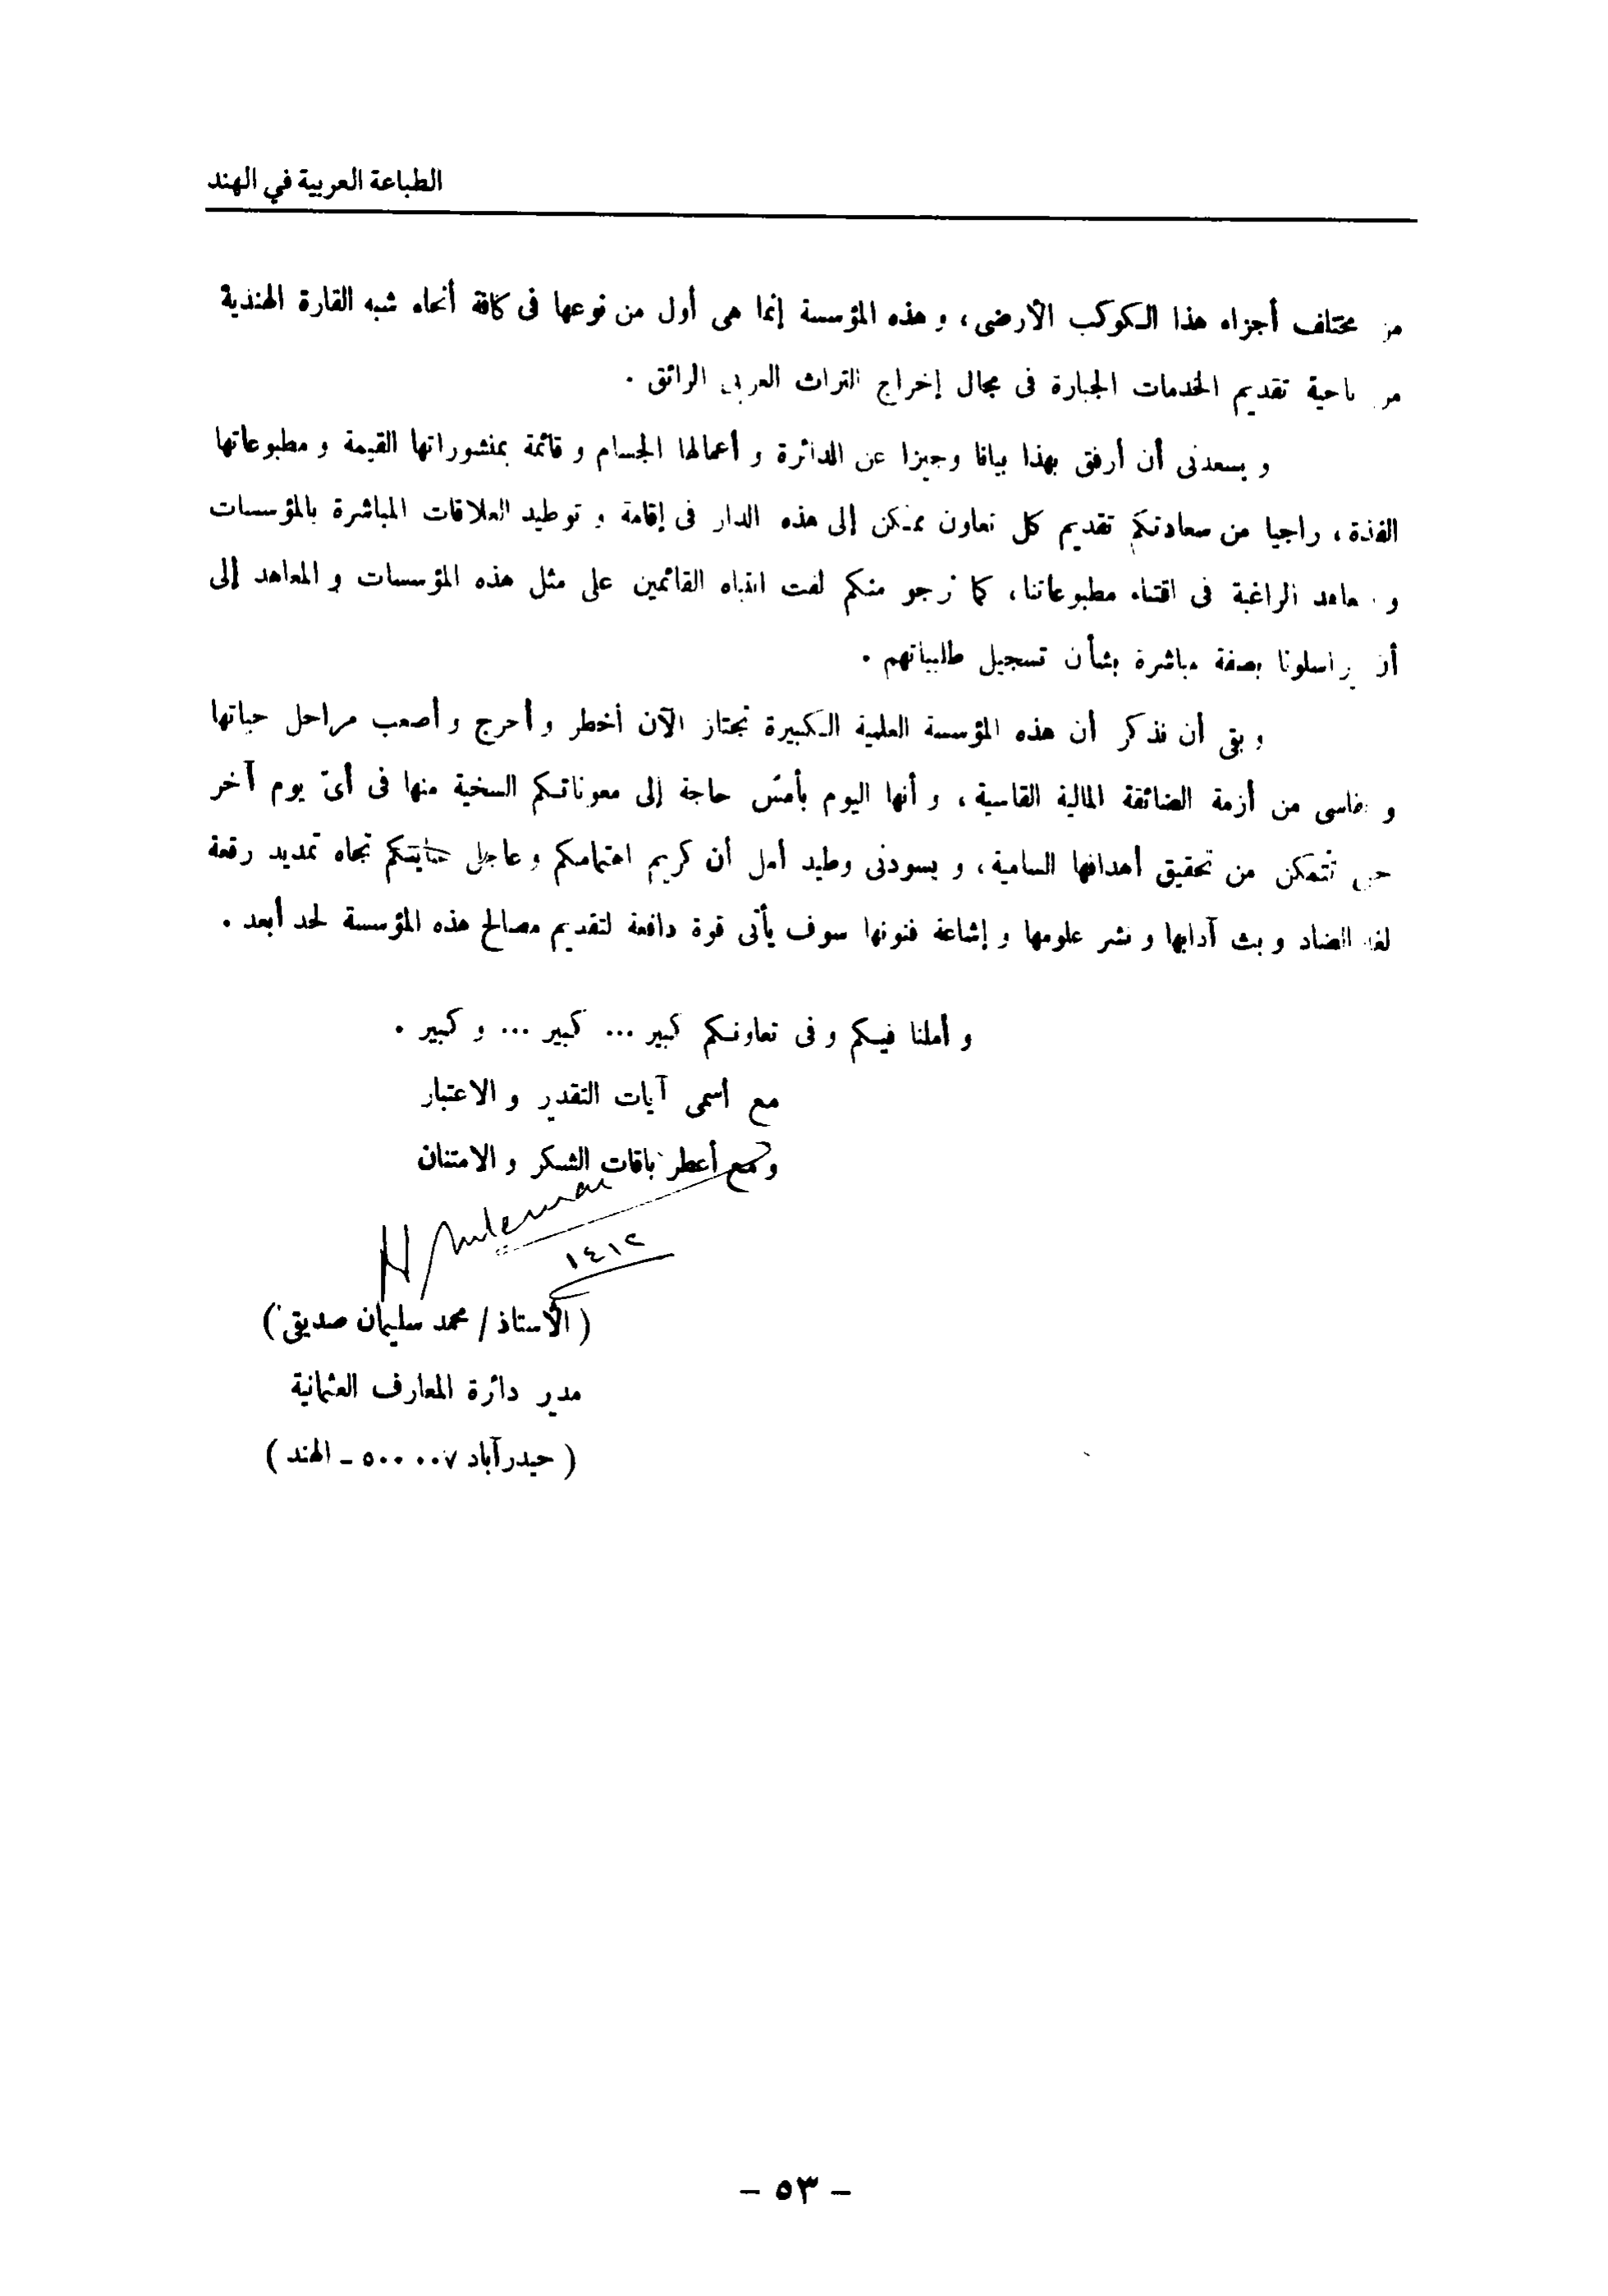 الطباعة العربية في الهند
من مختلف أجزاء هذا الكوكب الأرضى، و هذه المؤسسة إنما هى أول من نوعها فى كافة أنحاء شبه القارة الهندية
من ناحية تقديم الخدمات الجبارة فى مجال إخراج التراث العربى الرائق .
و يسعدنى أن أرفق بهذا بيانا وجيزا عن الدائرة و أعمالها الجسام و قائمة بمنشوراتها القيمة و مطبوعاتها
الفذة، راجيا من سعادتكم تقديم كل تعاون ممكن إلى هذه الدار فى إقامة و توطيد العلاقات المباشرة بالمؤسسات
و المعاهد الراغبة فى اقتناء مطبوعاتنا، كما نرجو منكم لفت انتباه القائمين على مثل هذه المؤسسات و المعاهد إلى
أن يراسلونا بصفة مباشرة بشأن تسجيل طلبياتهم .
و بقى أن نذكر أن هذه المؤسسة العلمية الكبيرة تجتاز الآن أخطر و أحرج و أصعب مراحل حياتها
و تقاسى من أزمة الضائقة المالية القاسية، و أنها اليوم بأمسّ حاجة إلى معوناتكم السخية منها فى أىّ يوم آخر
حتى تتمكن من تحقيق أهدافها السامية، و يسودنى وطيد أمل أن كريم اهتمامكم و عاجل عنايتكم تجاه تمديد رقعة
لغة الضاد و بث آدابها و نشر علومها و إشاعة فنونها سوف يأتى قوة دافعة لتقديم مصالح هذه المؤسسة لحد أبعد .
و أملنا فيكم و فى تعاونكم كبير ... كبير ... و كبير .
مع أسمى آيات التقدير و الاعتبار
و مع أعطر باقات الشكر و الامتنان
١٤١٢
( الأستاذ / محمد سليمان صديقى )
مدير دائرة المعارف العثمانية
( حيدرآباد ٥٠٠٠٠٧ ـ الهند )
– ٥٣ –